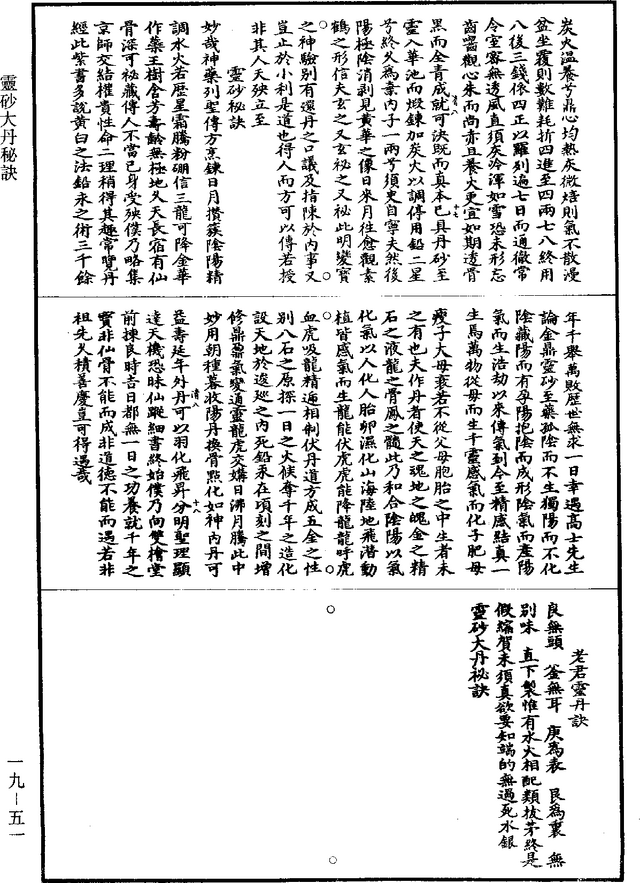 炭火溫養兮鼎心均熱灰微焙則氣不散漫
盆坐覆則數難耗折四進至四兩七八終用
八後三錢依四正以羅列遍七日而通徹常
令室密無透風直須灰冷渾如雪恐未形忘
齒嚙觀心朱而尚赤且養火更宜如期透骨
黑而全青成就可決既而真本已具丹砂至
靈入華池而煅鍊加炭火以調停用鉛二星
兮終父為葉內子一兩兮須史自寧夫然後
陽極陰消剥見黃華之像日來月往愈觀素
鶴之形信夫玄之又玄祕之又祕此明變寶
之神驗別有還丹之口議及指陳於內事又
豈止於小利是道也得人而方可以傳若授
非其人天殃立至
靈砂秘訣
妙哉神藥列聖傳方烹鍊日月攢蔟陰陽精
調水火若歷星霜騰粉硼信三龍可降金華
作藥王樹含芳壽齡無極地久天長宿有仙
骨深可祕藏傳人不當已身受殃僕乃略集
京師交結權貴性命二理稍得其趣常覽丹
經此紫書多說黃白之法鉛汞之術三千餘
年千舉萬敗歷世無求一日幸遇高士先生
論金鼎靈砂至藥孤陰而不生獨陽而不化
陰藏陽而有孕陽抱陰而成形陰氣而產陽
氣而生浩劫以來傳氣到今至精感結真一
生焉萬物從母而生千靈感氣而化子肥母
瘦子大母衰若不從父母胞胎之中生者未
之有也夫作丹者使天之魂地之魄金之精
石之液龍之骨鳳之髓此乃和合陰陽以氣
化氣以人化人胎卵濕化山海陸地飛潛動
植皆感氣而生龍能伏虎虎能降龍龍呼虎
血虎吸龍精遞相制伏丹道方成五金之性
別八石之原探一日之火候奪千年之造化
設天地於逡廵之內死鉛汞在頃刻之間增
修鼎器氣變通靈龍虎交媾日沸月騰此中
妙用朝種暮收陽丹換骨點化如神內丹可
益壽延年外丹可以羽化飛昇分明聖理顯
達天機恐昧仙蹤細書終始僕乃向雙檜堂
前揀良時吉日都無一日之功養就千年之
寶非仙骨不能而成非道德不能而遇若非
祖先久積善慶豈可得遇哉
老君靈丹訣
良無頭　釜無耳　庚為表　艮為裏　無
別味　直下製惟有水火相配類拔茅終是
假編賀未須真欲要知端的無過死水銀
靈砂大丹秘訣
靈砂大丹秘訣
一九－五一